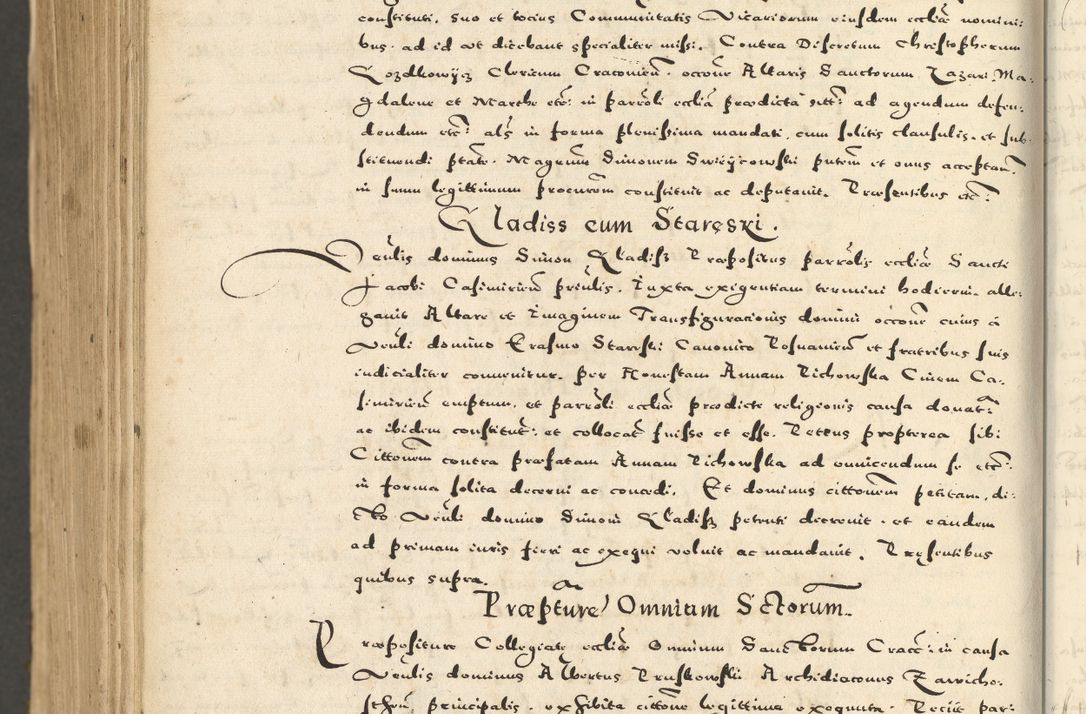 constituti, suo et tocius Communitatis Vicariorum eiusdem eccliæ nomini:
bus, ad id ut dicebant specialiter missi. Contra Discretum Christopherum
Clericum Cracovien̄. occoñe Altaris Sanctorum Lazari, Ma:
gdalene et Marthe etc̄: in parr̄oli ecclīa prædicta sitt: ad agendum defen:
dendum etc̄: als̄ in forma plenissima mandati, cum solitis clausulis, et sub
stituendi pt̄ate. Magr̄um Simonem pn̄tem et onus acceptan̄.
in suum legittimum procur̄em constituit ac deputavit. Præsentibus etc̄:
Kladiss cum Staręski.
Veñlis dominus Simon Kladisz Præpositus parr̄olis eccliæ Sancti
Jacobi Casimirieñ prīulis. Iuxta exigentiam termini hodierni alle:
gavit Altare et Imaginem Transfigurationis domini occoñe cuius a
Veñli domino Erasmo Stareski Canonico Posnanieñ et fratribus suis
indicialiter convenitur. per Honestam Annam Pichowska Civem Ca:
simirieñ emptum, et parr̄oli ecclīæ prædicte religionis causa donat̄:
ac ibidem constitut̄: et collocat̄ fuisse et esse. Petens propterea sibi
Cittoñem contra præfatam Annam Pichowska ad evincendum se etc̄:
in forma solita decerni ac concedi. Et dominus cittoñem petitam, di:
cto Veñli domino Simoni Kladisz petenti decrevit. et eandem
ad primam iuris fieri ac exequi voluit ac mandavit. Pręsentibus
quibus supra.
Præpture Omnium Sctorum.
Præpositure Collegiate eccliæ Omnium Sanctorum Cracc: in causa
Veñlis dominus Albertus Pruskowski Archidiaconus Zawicho:
steñ, principalis, exhibita cittoñe legittime exequuta. Recȩ par: